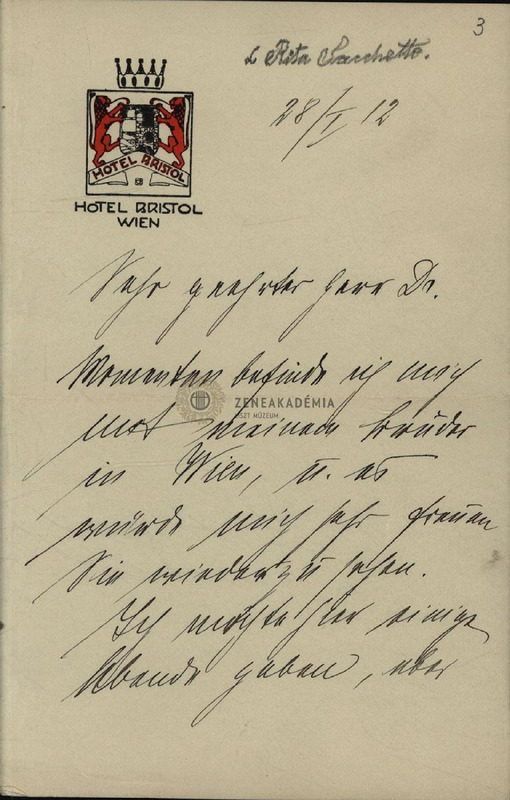 3
Rita Sacchetto.
28/I 12
HOTEL BRISTOL
HOTEL BRISTOL
WIEN
Sehr geehrter Herr Dr.
Momentan befinde ich mich
mit meinem Bruder
in Wien, u. es
würde mich sehr freuen
Sie wiederzusehen.
ZENEAKADÉMIA
LISZT MÚZEUM
Ich möchte hier einige
Abende geben, aber